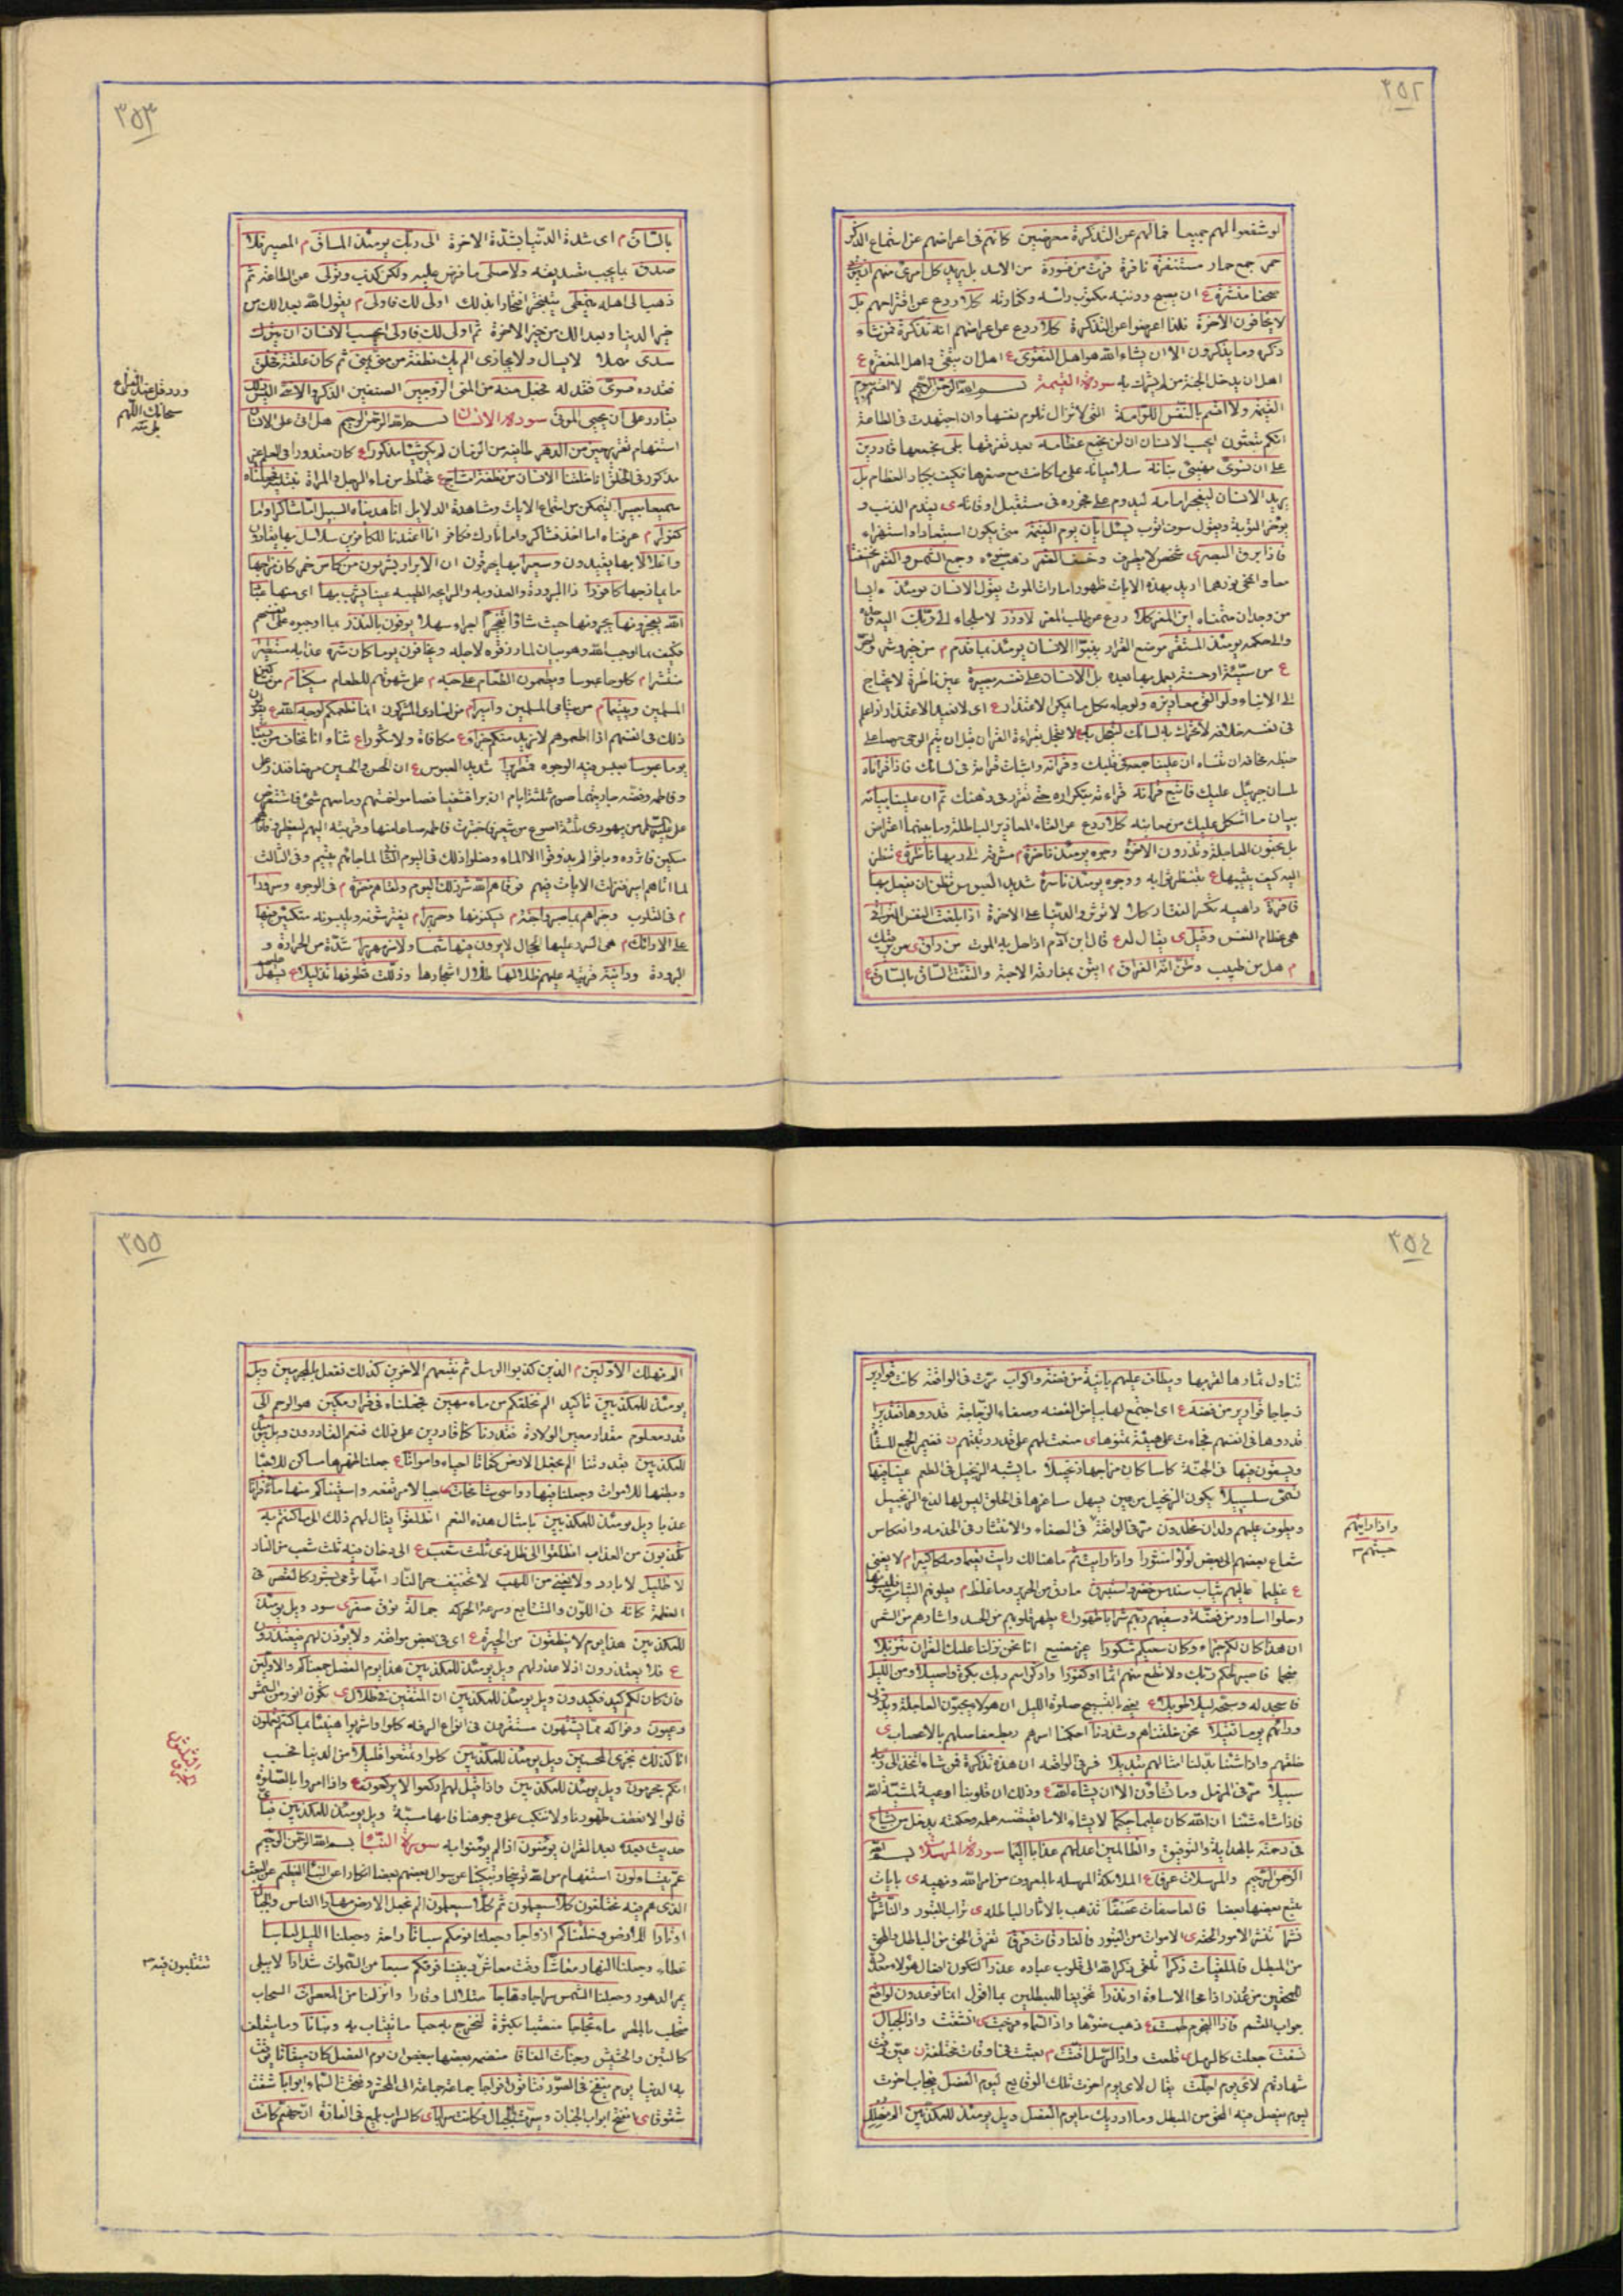 ٣٥٢
لو شفعوا لهم جميعا فما لهم عن التذكرة معرضين كانهم فى اعراضهم عن استماع الذكر
حمر جمع حمار مستنفرة نافرة فرت من قسورة من الاسد بل يريد كل امرئ منهم ان يؤتى
صحفا منشرة ع ان يصبح وذنبه مكتوب عند راسه وكفارته كلا ردع عن اقتراحهم بل
لا يخافون الاخرة فلذا اعرضوا عن التذكرة كلا ردع عن اعراضهم انه تذكرة فمن شاء
ذكره وما يذكرون الا ان يشاء الله هو اهل التقوى ع اهل ان يتقى واهل المغفرة ع
اهل ان يدخل الجنة من لم يشرك به سورة القيمة بسم الله الرحمن الرحيم لا اقسم بيوم
القيمة ولا اقسم بالنفس اللوامة التى لا تزال تلوم نفسها وان اجتهدت فى الطاعة
انكم تبعثون ايحسب الانسان ان لن نجمع عظامه بعد تفرقها بلى نجمعها قادرين
على ان نسوى بنانه سلامياته على ما كانت مع صغرها فكيف بكبار العظام بل
يريد الانسان ليفجر امامه ليدوم على فجوره فى مستقبل اوقاته ى يقدم الذنب و
يوخر التوبة ويقول سوف اتوب يسئل ايان يوم القيمة متى يكون استبعادا واستهزاء
فاذا برق البصر ى شخص لا يطرف وخسف القمر ذهب ضوءه وجمع الشمس والقمر
من وجدان متمناه اين المفر كلا ردع عن طلب المفر لا وزر لا ملجاء الى ربك
والى حكمه يومئذ المستقر موضع القرار ينبؤا الانسان يومئذ بما قدم م من خير وشر واخر
ع من سيئة او حسنة يعمل بها بعده بل الانسان على نفسه بصيرة عين ناظرة لا يحتاج
الى الانباء ولو القى معاذيره ولو جاء بكل ما يمكن الاعتذار ع اى لا يفيد الاعتذار
فى نفسه خلافه لا تحرك به لسانك لتعجل به لا تعجل بقراءة القران قبل ان يتم الوحى حرصا على
حفظه مخافة ان تنساه ان علينا جمعه فى قلبك وقرانه واثبات قرائته فى لسانك فاذا قراناه
بلسان جبرئيل عليك فاتبع قرآنه قراءته بتكراره حتى تقرر فى ذهنك ثم ان علينا بيانه
بيان ما اشكل عليك من معانيه كلا ردع عن القاء المعاذير الباطلة وما بينهما اعتراض
بل تحبون العاجلة وتذرون الاخرة وجوه يومئذ ناضرة م مشرقة الى ربها ناظرة ع تنظر
اليه كيف يثيبها ع تنتظر ثوابه ووجوه يومئذ باسرة شديد العبوس تظن ان يفعل بها
فاقرة داهية تكسر الفقار كلا لا تؤثروا الدنيا على الاخرة اذا بلغت النفس التراقى
هى عظام النفس وقيل ى يقال له ع قال ابن آدم اذا حل به الموت من راق
م هل من طبيب وظن انه الفراق م ايقن بمفارقة الاحبة والتفت الساق بالساق ع
٣٥٣
بالساق م اى شدة الدنيا بشدة الاخرة الى ربك يومئذ المساق م المصير فلا
صدق بما يجب تصديقه ولا صلى ما فرض عليه ولكن كذب وتولى عن الطاعة ثم
ذهب الى اهله يتمطى يتبختر افتخارا بذلك اولى لك فاولى م يقول الله بعدا لك من
خير الدنيا وبعدا لك من خير الاخرة ثم اولى لك فاولى ايحسب الانسان ان يترك
سدى مهملا لا يسال ولا يجازى الم يك نطفة من منى يمنى ثم كان علقة فخلق
فقدره فسوى فعدله فجعل منه من المنى الزوجين الصنفين الذكر والانثى اليس ذلك
بقادر على ان يحيى الموتى سورة الانسان بسم الله الرحمن الرحيم هل اتى على الانسان
استفهام تقرير حين من الدهر طائفة من الزمان لم يكن شيئا مذكورا ع كان مقدورا فى العلم غير
مذكور فى الخلق انا خلقنا الانسان من نطفة امشاج ع مختلط من ماء الرجل والمراة نبتليه فجعلناه
سميعا بصيرا ليتمكن من استماع الايات ومشاهدة الدلايل انا هديناه السبيل اما شاكرا واما
كفورا م عرفناه اما اخذ فشاكر واما تارك فكافر انا اعتدنا للكافرين سلاسل بها يقادون
واغلالا بها يقيدون وسعيرا بها يحرقون ان الابرار يشربون من كاس خمر كان مزاجها
ما يمازجها كافورا ذا البرودة والعذوبة والرايحة الطيبة عينا يشرب بها اى منها عباد
الله يفجرونها يجرونها حيث شاؤا تفجيرا اجراء سهلا يوفون بالنذر بما اوجبوه على انفسهم
فكيف بما اوجب الله وهو بيان لما رزقوه لاجله ويخافون يوما كان شره عذابه مستطيرا
منتشرا م كلوحا عبوسا ويطعمون الطعام على حبه م على شهوتهم للطعام مسكينا م من مساكين
المسلمين ويتيما م من يتامى المسلمين واسيرا م من اسارى المشركين انما نطعمكم لوجه الله ع
ذلك فى انفسهم اذا اطعموهم لا نريد منكم جزاء ع مكافاة ولا شكورا ع ثناء انا نخاف من ربنا
يوما عبوسا تعبس فيه الوجوه قمطريرا شديد العبوس ع ان الحسن والحسين مرضا فنذر على
وفاطمة وفضة جاريتهما صوم ثلثة ايام ان برا فشفيا فصاموا وما معهم شئ فاستقرض
على من يهودى ثلثة اصوع من شعير فاختبزت فاطمة صاعا منها وقربته اليهم ليفطروا
مسكين فاثروه وباتوا لم يذوقوا الا الماء وفعلوا ذلك فى اليوم الثانى لما جائهم يتيم وفى الثالث
لما اتاهم اسير فنزلت الايات فيهم فوقاهم الله شر ذلك اليوم ولقاهم نضرة م فى الوجوه وسرورا
م فى القلوب وجزاهم بما صبروا جنة م يسكنونها وحريرا م يفترشونه ويلبسونه متكئين فيها
على الارائك م هى السرر عليها الحجال لا يرون فيها شمسا ولا زمهريرا شدة من الحرارة و
البرودة ودانية قريبة عليهم ظلالها ظلال اشجارها وذللت قطوفها تذليلا ع
سبحانك اللهم
٣٥٤
تناول ثمارها لقربها ويطاف عليهم بانية من فضة واكواب مرت فى الواقعة كانت قوارير
زجاجا قوارير من فضة ع اى اجتمع لها بياض الفضة وصفاء الزجاجة قدروها تقديرا
قدروها فى انفسهم فجاءت على هيئة تمنوها ى
ويسقون فيها فى الجنة كاسا كان مزاجها زنجبيلا ما يشبه الزنجبيل فى الطعم عينا فيها
تسمى سلسبيلا يكون الزنجبيل من عين يسهل ساغرها فى الحلق ليس لها لذع الزنجبيل
ويطوف عليهم ولدان مخلدون مر فى الواقعة فى الصفاء والانتشار فى الخدمة وانعكاس
شعاع بعضهم الى بعض لؤلؤا منثورا واذا رايت ثم ما هنالك رايت نعيما وملكا كبيرا م لا يفنى
ع عظيما عاليهم ثياب سندس خضر واستبرق ما رق من الحرير وما غلظ م
وحلوا اساور من فضة وسقيهم ربهم شرابا طهورا ع يطهر قلوبهم من الحسد
ان هذا كان لكم جزاء وكان سعيكم مشكورا غير مضيع انا نحن نزلنا عليك القران تنزيلا
منجما فاصبر لحكم ربك ولا تطع منهم اثما او كفورا واذكر اسم ربك بكرة واصيلا ومن الليل
فاسجد له وسبحه ليلا طويلا ع يعنى بالتسبيح صلوة الليل ان هولاء يحبون العاجلة ويذرون
ورائهم يوما ثقيلا نحن خلقناهم وشددنا احكمنا اسرهم ربط مفاصلهم بالاعصاب ى
خلقهم واذا شئنا بدلنا امثالهم تبديلا مر فى الواقعة ان هذه تذكرة فمن شاء اتخذ الى ربه
سبيلا مر فى المزمل وما تشاؤن الا ان يشاء الله ع وذلك ان قلوبنا اوعية لمشية الله
فاذا شاء شئنا ان الله كان عليما حكيما لا يشاء الا ما يقتضيه علمه وحكمته يدخل من يشاء
فى رحمته بالهداية والتوفيق والظالمين اعد لهم عذابا اليما سورة المرسلات بسم الله
الرحمن الرحيم والمرسلات عرفا ع الملائكة المرسلة بالمعروف من امر الله ونهيه ى بايات
يتبع بعضها بعضا فالعاصفات عصفا تذهب بالاثار الباطلة ى تراب القبور والناشرات
نشرا تنشر الامور الحقة ى الاموات من القبور فالفارقات فرقا تفرق الحق من الباطل والمحق
من المبطل فالملقيات ذكرا تلقى ذكر الله الى قلوب عباده عذرا لتكون
للمحقين من عذر اذا محا الاساءة او نذرا تخويفا للمبطلين بما اقول انما توعدون لواقع
جواب القسم فاذا النجوم طمست ع ذهب ضوؤها واذا السماء فرجت ى انشقت واذا الجبال
نسفت جعلت كالرمل ى قلعت واذا الرسل اقتت م بعثت فى اوقات مختلفة ن عين وقت
شهادتهم لاى يوم اجلت يقال لاى يوم اخرت تلك الوقايع ليوم الفصل يجاب اخرت
ليوم يفصل فيه المحق من المبطل وما ادريك ما يوم الفصل ويل يومئذ للمكذبين الم نهلك
واذا رايتهم
حسبتهم
٣٥٥
الم نهلك الاولين م الذين كذبوا الرسل ثم نتبعهم الاخرين كذلك نفعل بالمجرمين ويل
يومئذ للمكذبين تاكيد الم نخلقكم من ماء مهين فجعلناه فى قرار مكين هو الرحم الى
قدر معلوم مقدار معين الولادة فقدرنا كنا قادرين على ذلك فنعم القادرون ويل يومئذ
للمكذبين بقدرتنا الم نجعل الارض كفاتا احياء وامواتا ع جعلنا ظهرها مساكن للاحياء
وبطنها للاموات وجعلنا فيها رواسى شامخات جبالا مرتفعة واسقيناكم منها ماء فراتا
عذبا ويل يومئذ للمكذبين بامثال هذه النعم انطلقوا يقال لهم ذلك الى ما كنتم به
تكذبون من العذاب انطلقوا الى ظل ذى ثلث شعب ع الى دخان فيه ثلث شعب من النار
لا ظليل لا بارد ولا يغنى من اللهب لا تخفيف حر النار انها ترمى بشرر كالقصر فى
العظمة كانه فى اللون والتتابع وسرعة الحركة جمالة نوق صفر ى سود ويل يومئذ
للمكذبين هذا يوم لا ينطقون من الحيرة ع اى فى بعض مواقفه ولا يؤذن لهم فيعتذرون
ع فلا يعتذرون اذ لا عذر لهم ويل يومئذ للمكذبين هذا يوم الفصل جمعناكم والاولين
فان كان لكم كيد فكيدون ويل يومئذ للمكذبين ان المتقين فى ظلال ى
وعيون وفواكه مما يشتهون مستقرون فى انواع الرفه كلوا واشربوا هنيئا بما كنتم تعملون
انا كذلك نجزى المحسنين ويل يومئذ للمكذبين كلوا وتمتعوا قليلا من الدنيا فحسب
انكم مجرمون ويل يومئذ للمكذبين واذا قيل لهم اركعوا لا يركعون ع واذا امروا بالصلوة
قالوا لا نعطف ظهورنا ولا ننكب على وجوهنا فانها سبة ويل يومئذ للمكذبين فباى
حديث بعده بعد القران يؤمنون اذا لم يؤمنوا به سورة النبا بسم الله الرحمن الرحيم
عم يتساءلون استفهام من الله توبيخا وتبكيتا عن سوال بعضهم بعضا انكارا عن النبا العظيم عن البعث
الذى هم فيه مختلفون كلا سيعلمون ثم كلا سيعلمون الم نجعل الارض مهادا للناس والجبال
اوتادا للارض وخلقناكم ازواجا وجعلنا نومكم سباتا راحة وجعلنا الليل لباسا
غطاء وجعلنا النهار معاشا وقت معاش وبنينا فوقكم سبعا من السموات شدادا لا يبلى
بمر الدهور وجعلنا الشمس سراجا وهاجا متلالئا وقادا وانزلنا من المعصرات السحاب
بالمطر ماء ثجاجا منصبا بكثرة لنخرج به حبا ما يقتات به ونباتا وما يعتلف
كالتبن والحشيش وجنات الفافا منضمة بعضها ببعض ان يوم الفصل كان ميقاتا
به الدنيا يوم ينفخ فى الصور فتاتون افواجا جماعة جماعة الى المحشر وفتحت السماء ابوابا شقت
شقوقا ى تفتح ابواب الجنان وسيرت الجبال فكانت سرابا ى كالسراب يلمع فى المفازة ان جهنم كانت
تتقلبون فيه